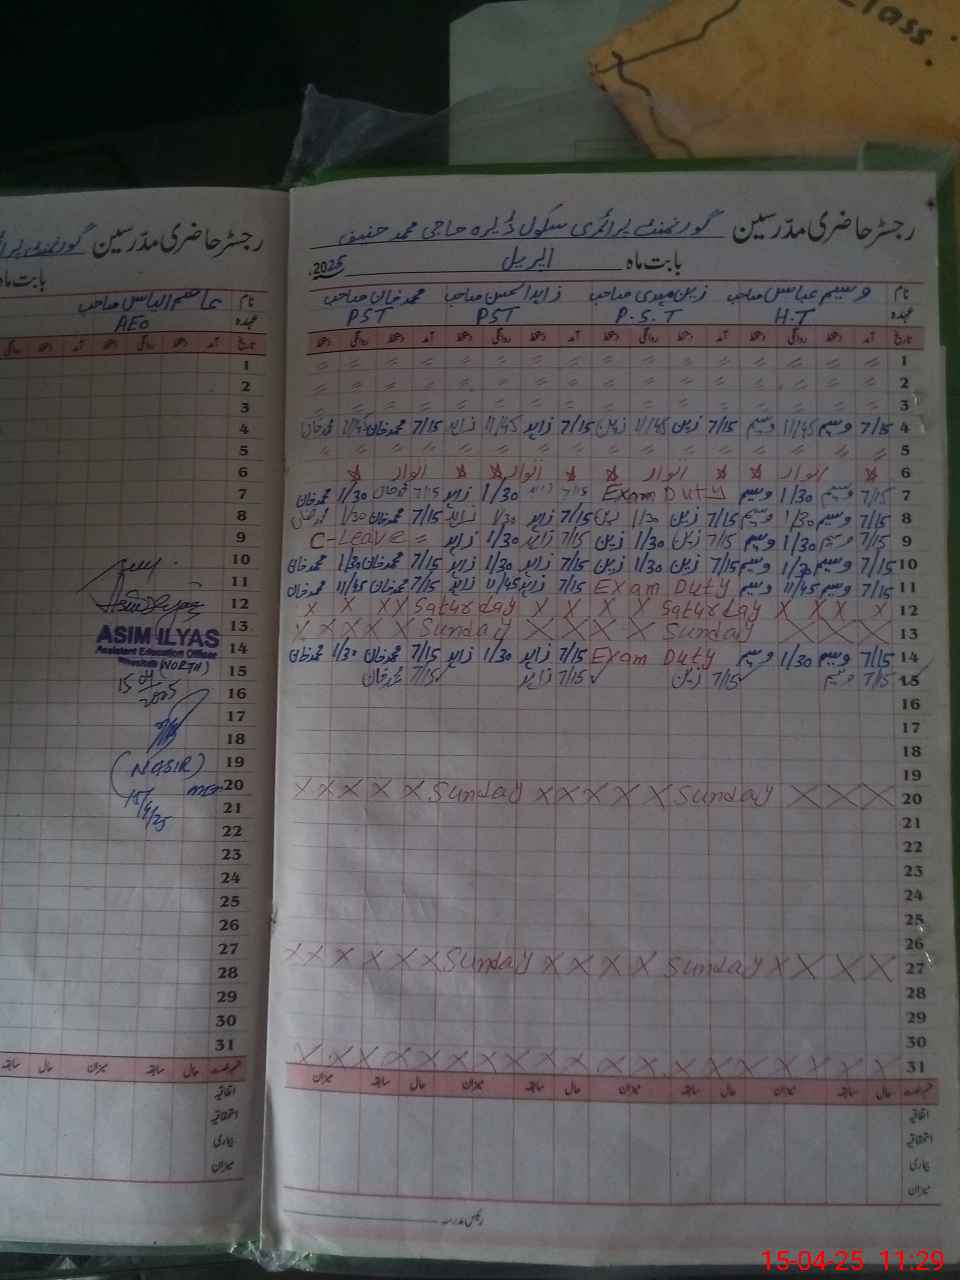 Class.
رجسٹر حاضری مدرسین گورنمنٹ پرائمری سکول ڈیرہ حاجی محمد حنیف
بابت ماہ اپریل 2025
نام وسیم عباس صاحب زین مہدی صاحب زاہد الحسن صاحب محمد خان صاحب
عہدہ H.T P.S.T PST PST
تاریخ آمد دستخط روانگی دستخط آمد دستخط روانگی دستخط آمد دستخط روانگی دستخط آمد دستخط روانگی دستخط
1 〃 〃 〃 〃 〃 〃 〃 〃 〃 〃 〃 〃 〃 〃 〃 〃
2 〃 〃 〃 〃 〃 〃 〃 〃 〃 〃 〃 〃 〃 〃 〃 〃
3 〃 〃 〃 〃 〃 〃 〃 〃 〃 〃 〃 〃 〃 〃 〃 〃
4 7/15 وسیم 11/45 وسیم 7/15 زین 11/45 زین 7/15 زاہد 11/45 زاہد 7/15 محمد خان 11/45 محمد خان
5 〃 〃 〃 〃 〃 〃 〃 〃 〃 〃 〃 〃 〃 〃 〃 〃
6 اتوار اتوار اتوار اتوار
7 7/15 وسیم 1/30 وسیم Exam Duty 7/15 زاہد 1/30 زاہد 7/15 محمد خان 1/30 محمد خان
8 7/15 وسیم 1/30 وسیم 7/15 زین 1/30 زین 7/15 زاہد 1/30 زاہد 7/15 محمد خان 1/30 محمد خان
9 7/15 وسیم 1/30 وسیم 7/15 زین 1/30 زین 7/15 زاہد 1/30 زاہد C-Leave =
10 7/15 وسیم 1/30 وسیم 7/15 زین 1/30 زین 7/15 زاہد 1/30 زاہد 7/15 محمد خان 1/30 محمد خان
11 7/15 وسیم 11/45 وسیم Exam Duty 7/15 زاہد 11/45 زاہد 7/15 محمد خان 11/45 محمد خان
12 X X X X Saturday X X X X Saturday X X X X
13 X X X X X Sunday X X X X Sunday X X X
14 7/15 وسیم 1/30 وسیم Exam Duty 7/15 زاہد 1/30 زاہد 7/15 محمد خان 1/30 محمد خان
15 7/15 وسیم 7/15 زین 7/15 زاہد 7/15 محمد خان
16
17
18
19
20 X X X X X Sunday X X X X X Sunday X X X
21
22
23
24
25
26
27 X X X X X X Sunday X X X X Sunday X X X X
28
29
30
31 X X X X X X X X X X X X X X X X
حال سابقہ میزان حال سابقہ میزان حال سابقہ میزان حال سابقہ میزان
اتفاقیہ
استحقاقیہ
بیماری
میزان
رئیس مدرسہ
رجسٹر حاضری مدرسین گورنمنٹ پرائمری
بابت ماہ
نام عاصم الیاس صاحب
عہدہ AEO
تاریخ آمد دستخط روانگی دستخط آمد دستخط روانگی
1
2
3
4
5
6
7
8
9
10
11
12
13 ASIM ILYAS
14 Assistant Education Officer
15 (NORTH)
15/04/2025
16
17
18
19 (NASIR)
20
15/4/25
21
22
23
24
25
26
27
28
29
30
31
حال سابقہ میزان حال سابقہ
اتفاقیہ
استحقاقیہ
بیماری
میزان
15-04-25 11:29